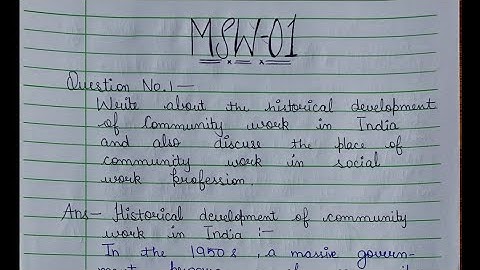 MSW-01
Question No.1 —
Write about the historical development
of Community work in India
and also discuss the place of
community work in social
work profession.
Ans- Historical development of community
work in India :-
In the 1950s, a massive govern-
ment